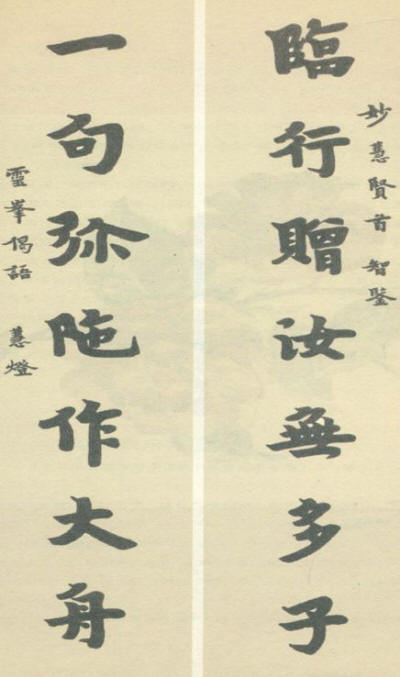 妙慧賢首 智鑒
臨行贈汝無多子
一句弥陁作大舟
靈峯偈語 慧燈